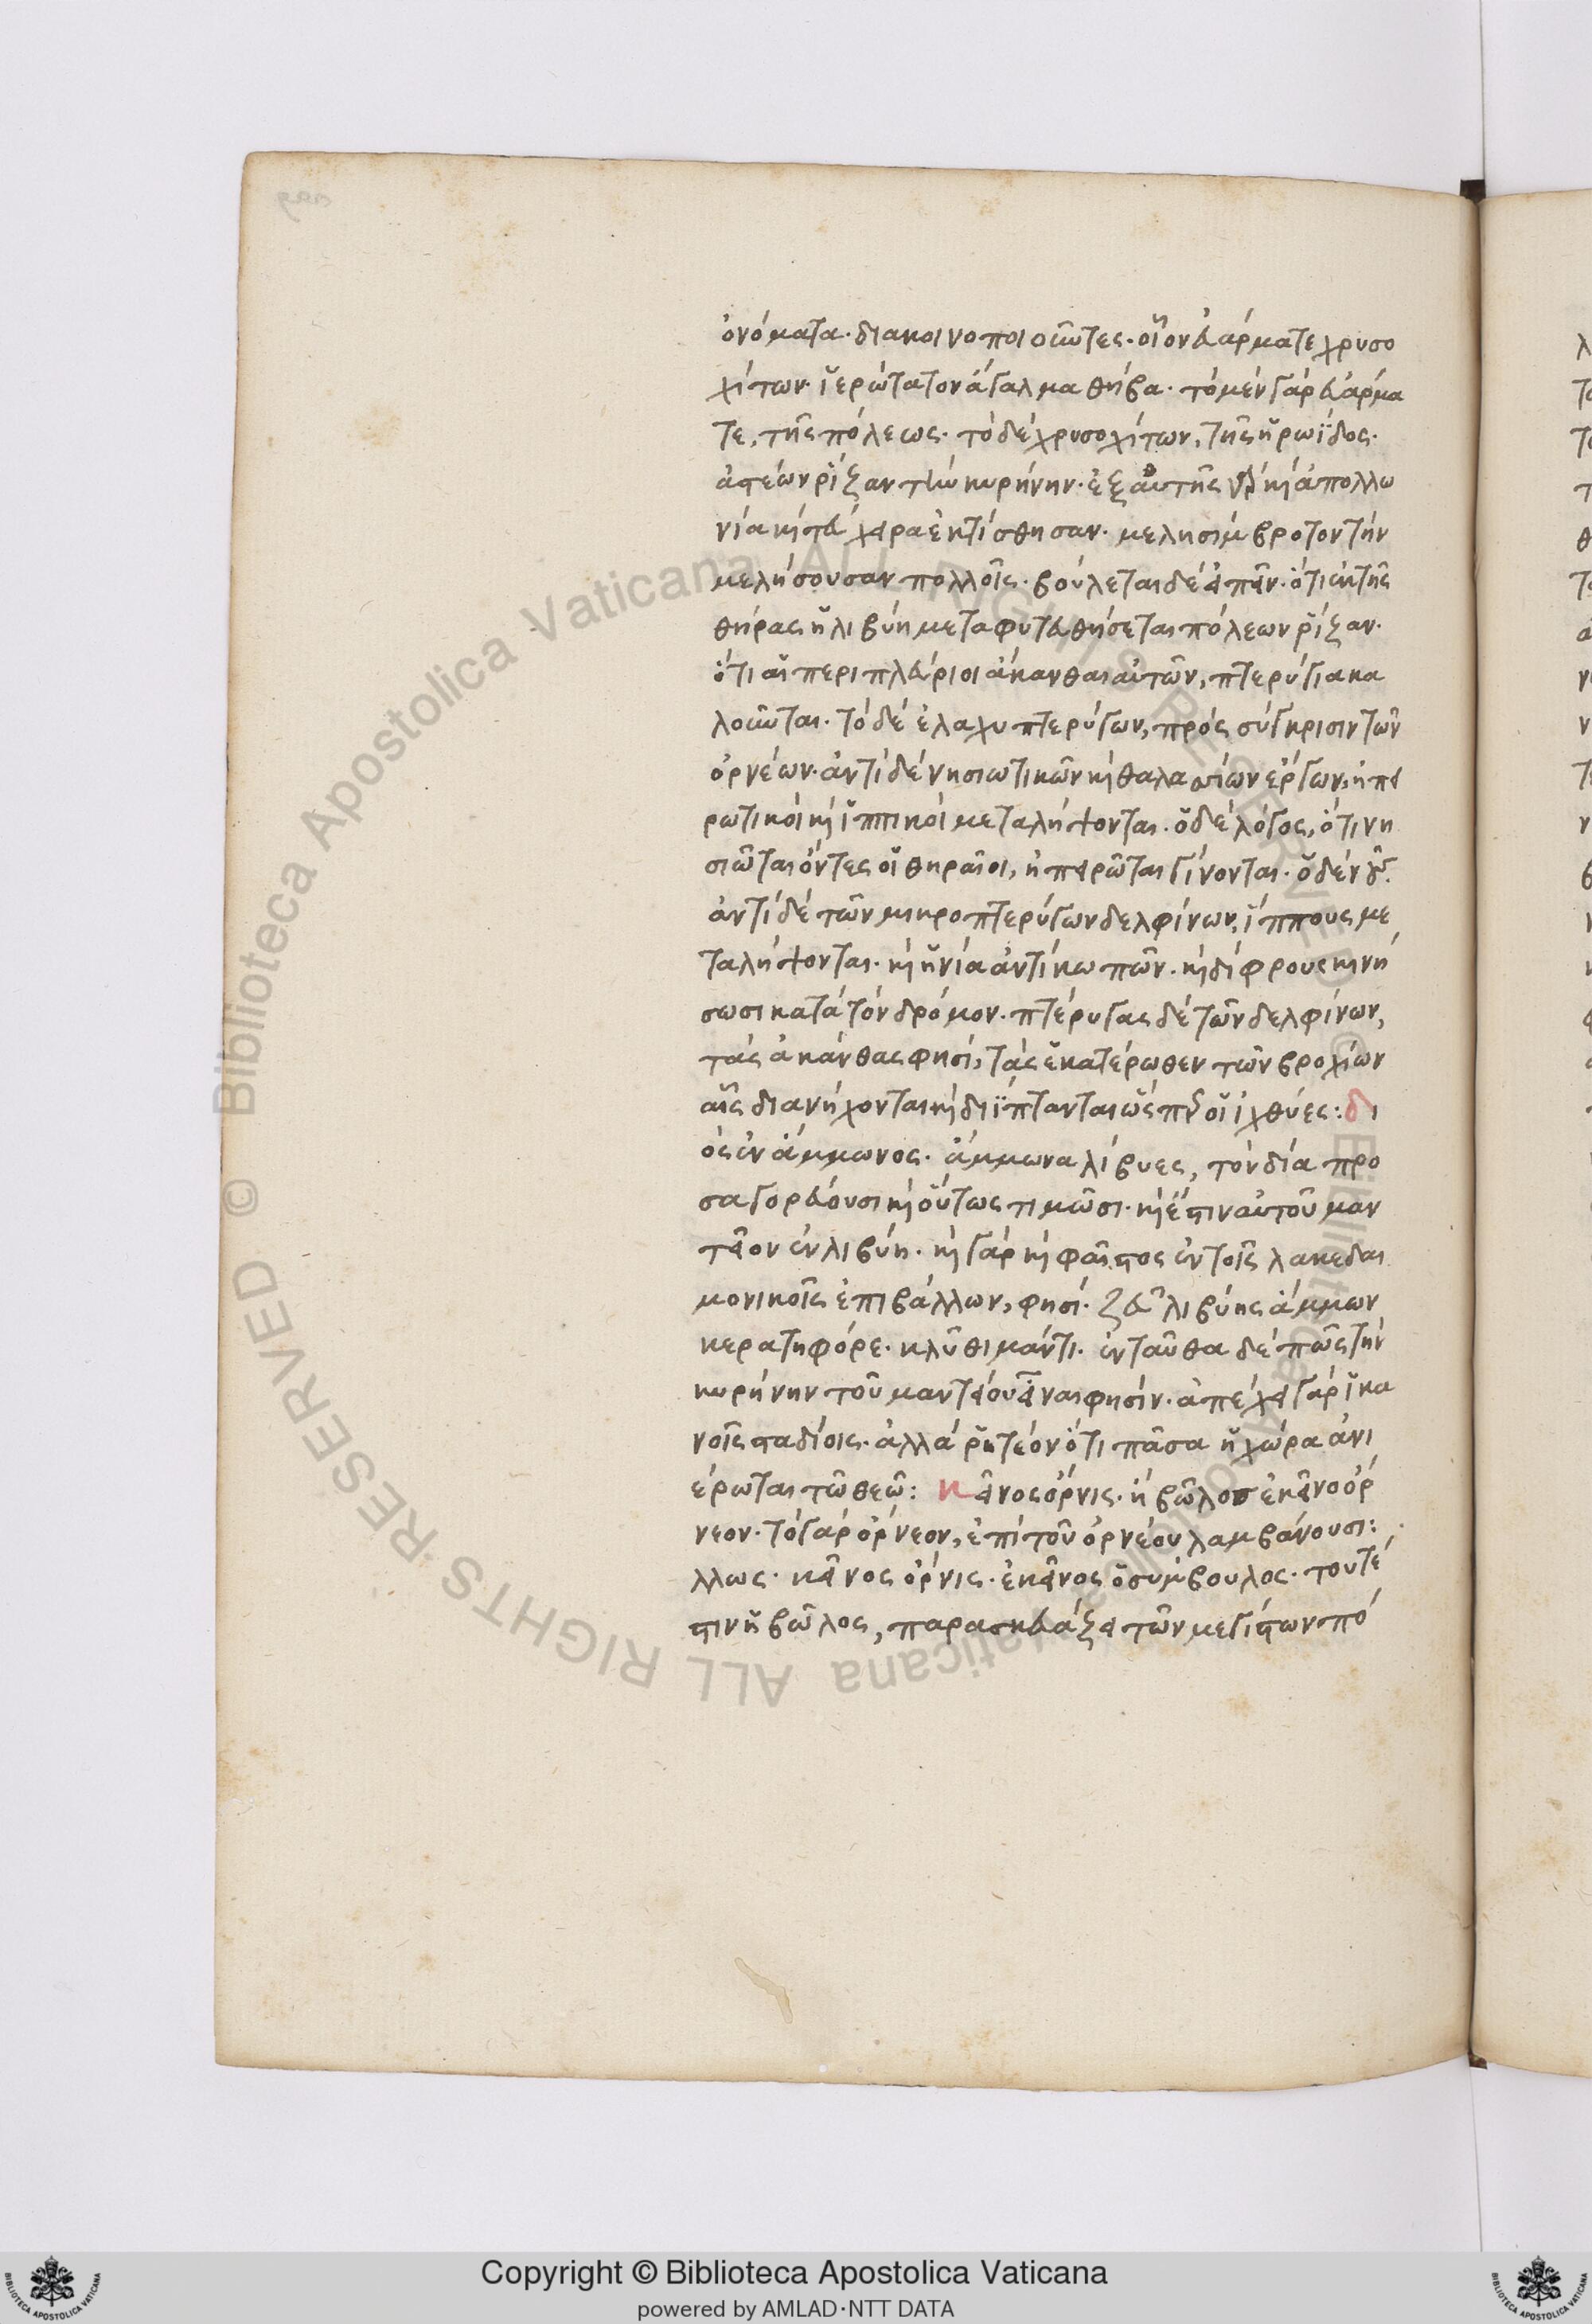 ὀνόματα· διακοινοποιοῦντες· οἷον εὐάρματε χρυσο
χίτων· ἱερώτατον ἄγαλμα θήβα· τὸ μὲν γὰρ εὐάρμα
τε, τῆς πόλεως· τὸ δὲ χρυσοχίτων, τῆς ἡρωΐδος·
ἀστέων ῥίζαν τὴν κυρήνην· ἐξ αὐτῆς γὰρ καὶ ἀπολλω
νία καὶ τεύχειρα ἐκτίσθησαν· μελησίμβροτον τὴν
μελήσουσαν πολλοῖς· βούλεται δὲ εἰπεῖν· ὅτι ἐκ τῆς
θήρας ἡ λιβύη μεταφυτευθήσεται πόλεων ῥίζαν·
ὅτι αἱ περιπλεύριοι ἄκανθαι αὐτῶν, πτερύγια κα
λοῦνται· τὸ δὲ ἐλαχυπτερύγων, πρὸς σύγκρισιν τῶν
ὀρνέων· ἀντὶ δὲ νησιωτικῶν καὶ θαλασσίων ἔργων, ἠπει
ρωτικοὶ καὶ ἱππικοὶ μεταλήψονται· ὁ δὲ λόγος, ὅτι νη
σιῶται ὄντες οἱ θηραῖοι, ἠπειρῶται γίνονται·
ἀντὶ δὲ τῶν μικροπτερύγων δελφίνων, ἵππους με
ταλήψονται· καὶ ἡνία ἀντὶ κωπῶν· καὶ δίφρους κινή
σωσι κατὰ τὸν δρόμον· πτέρυγας δὲ τῶν δελφίνων,
τὰς ἀκάνθας φησὶ, τὰς ἑκατέρωθεν τῶν βροχίων
αἷς διανήχονται καὶ διΐπτανται ὥσπερ οἱ ἰχθύες: δι
ὸς ἐν ἄμμωνος· ἄμμωνα λίβυες, τὸν δία προ
σαγορεύουσι καὶ οὕτως τιμῶσι· καὶ ἔστιν αὐτοῦ μαν
τεῖον ἐν λιβύῃ· καὶ γὰρ καὶ φαῖστος ἐν τοῖς λακεδαι
μονικοῖς ἐπιβάλλων, φησί· ζεῦ λιβύης ἄμμων
κερατηφόρε· κλῦθι μάντι· ἐνταῦθα δὲ πῶς τὴν
κυρήνην τοῦ μαντείου εἶναι φησίν· ἀπέχει γὰρ ἱκα
νοῖς σταδίοις· ἀλλὰ ῥητέον ὅτι πᾶσα ἡ χώρα ἀνι
έρωται τῷ θεῷ: κεῖνος ὄρνις· ἡ βῶλος ἐκεῖνο ὄρ
νεον· τὸ γὰρ ὄρνεον, ἐπὶ τοῦ ὀρνέου λαμβάνουσι:
λλως· κεῖνος ὄρνις· ἐκεῖνος ὁ σύμβουλος· τουτέ
στιν ἡ βῶλος, παρασκευάξει τῶν μεγίστων πό